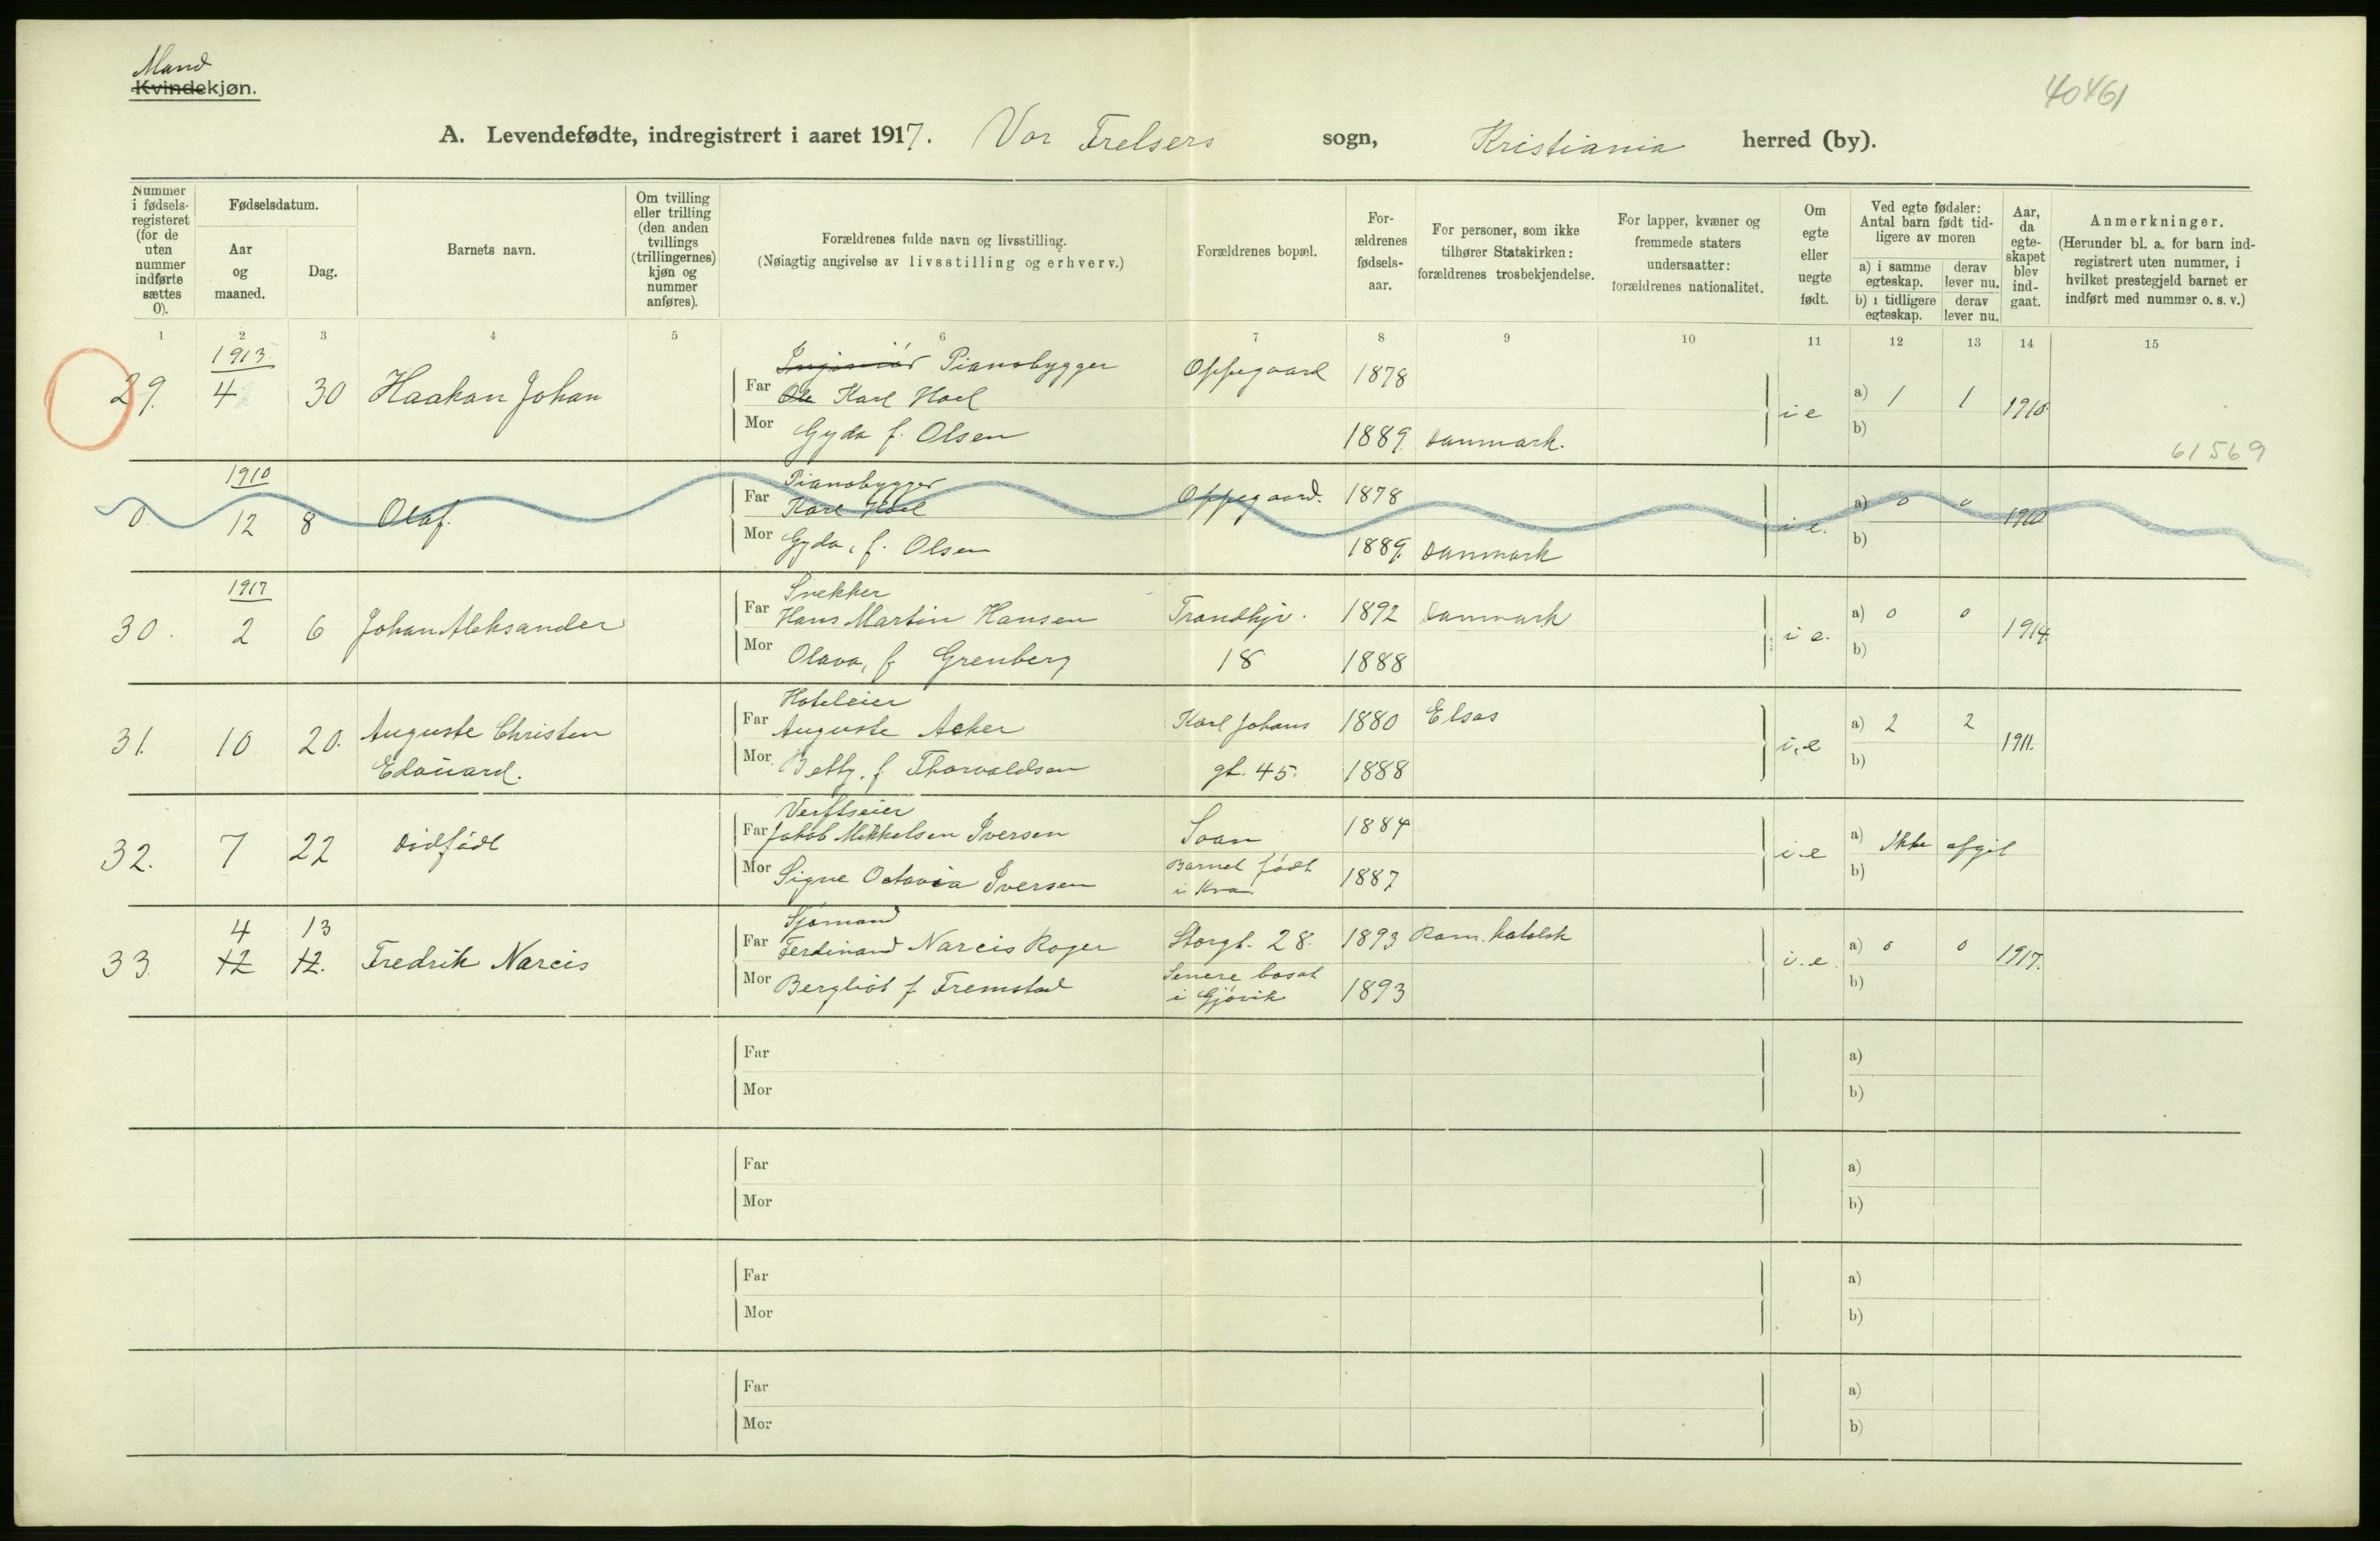 Mand
Kvindekjøn.
40461
A. Levendefødte, indregistrert i aaret 1917. Vor Frelsers sogn, Kristiania herred (by).
Nummer i fødsels-registeret (for de uten nummer indførte sættes 0).
Fødselsdatum.
Aar og maaned.
Dag.
Barnets navn.
Om tvilling eller trilling (den anden tvillings (trillingernes) kjøn og nummer anføres).
Forældrenes fulde navn og livsstilling.
(Nøiagtig angivelse av livsstilling og erhverv.)
Forældrenes bopæl.
For-ældrenes fødsels-aar.
For personer, som ikke tilhører Statskirken: forældrenes trosbekjendelse.
For lapper, kvæner og fremmede staters undersaatter: forældrenes nationalitet.
Om egte eller uegte født.
Ved egte fødsler: Antal barn født tid-ligere av moren
a) i samme egteskap. derav lever nu.
b) i tidligere egteskap. derav lever nu.
Aar, da egte-skapet blev ind-gaat.
Anmerkninger.
(Herunder bl. a. for barn ind-registrert uten nummer, i hvilket prestegjeld barnet er indført med nummer o. s. v.)
1 2 3 4 5 6 7 8 9 10 11 12 13 14 15
1913
Ingeniør Pianobygger
29. 4 30 Haakon Johan Far Ole Karl Hoel Oppegaard 1878 i e a) 1 1 1910
Mor Gyda f. Olsen 1889 Danmark. b)
61569
1910
Pianobygger
0. 12 8 Olaf. Far Karl Hoel Oppegaard. 1878 i e. a) 0 0 1910
Mor Gyda, f. Olsen 1889. Danmark b)
1917
Snekker
30. 2 6 Johan Aleksander Far Hans Martin Hansen Trondhjv. 1892 Danmark i e. a) 0 0 1914
Mor Olava, f. Grenberg 18 1888 b)
Hoteleier
31. 10 20. Auguste Christen Far Auguste Acker Karl Johans 1880 Elsas i.e a) 2 2 1911.
Edouard. Mor Betty. f. Thorvaldsen gt. 45. 1888 b)
Verftseier
32. 7 22 Dødfødt Far Jakob Mikkelsen Iversen 1884 i.e a) Ikke opgit
Mor Signe Octavia Iversen Barnet født i Kra. 1887 b)
Sjømand
4 13
33. 12 12. Fredrik Narcis Far Ferdinand Narcis Roger Storgt. 28. 1893 Rom. katolsk i.e. a) 0 0 1917.
Mor Bergliot f Fremstad Senere bosat i Gjøvik 1893 b)
Far a)
Mor b)
Far a)
Mor b)
Far a)
Mor b)
Far a)
Mor b)